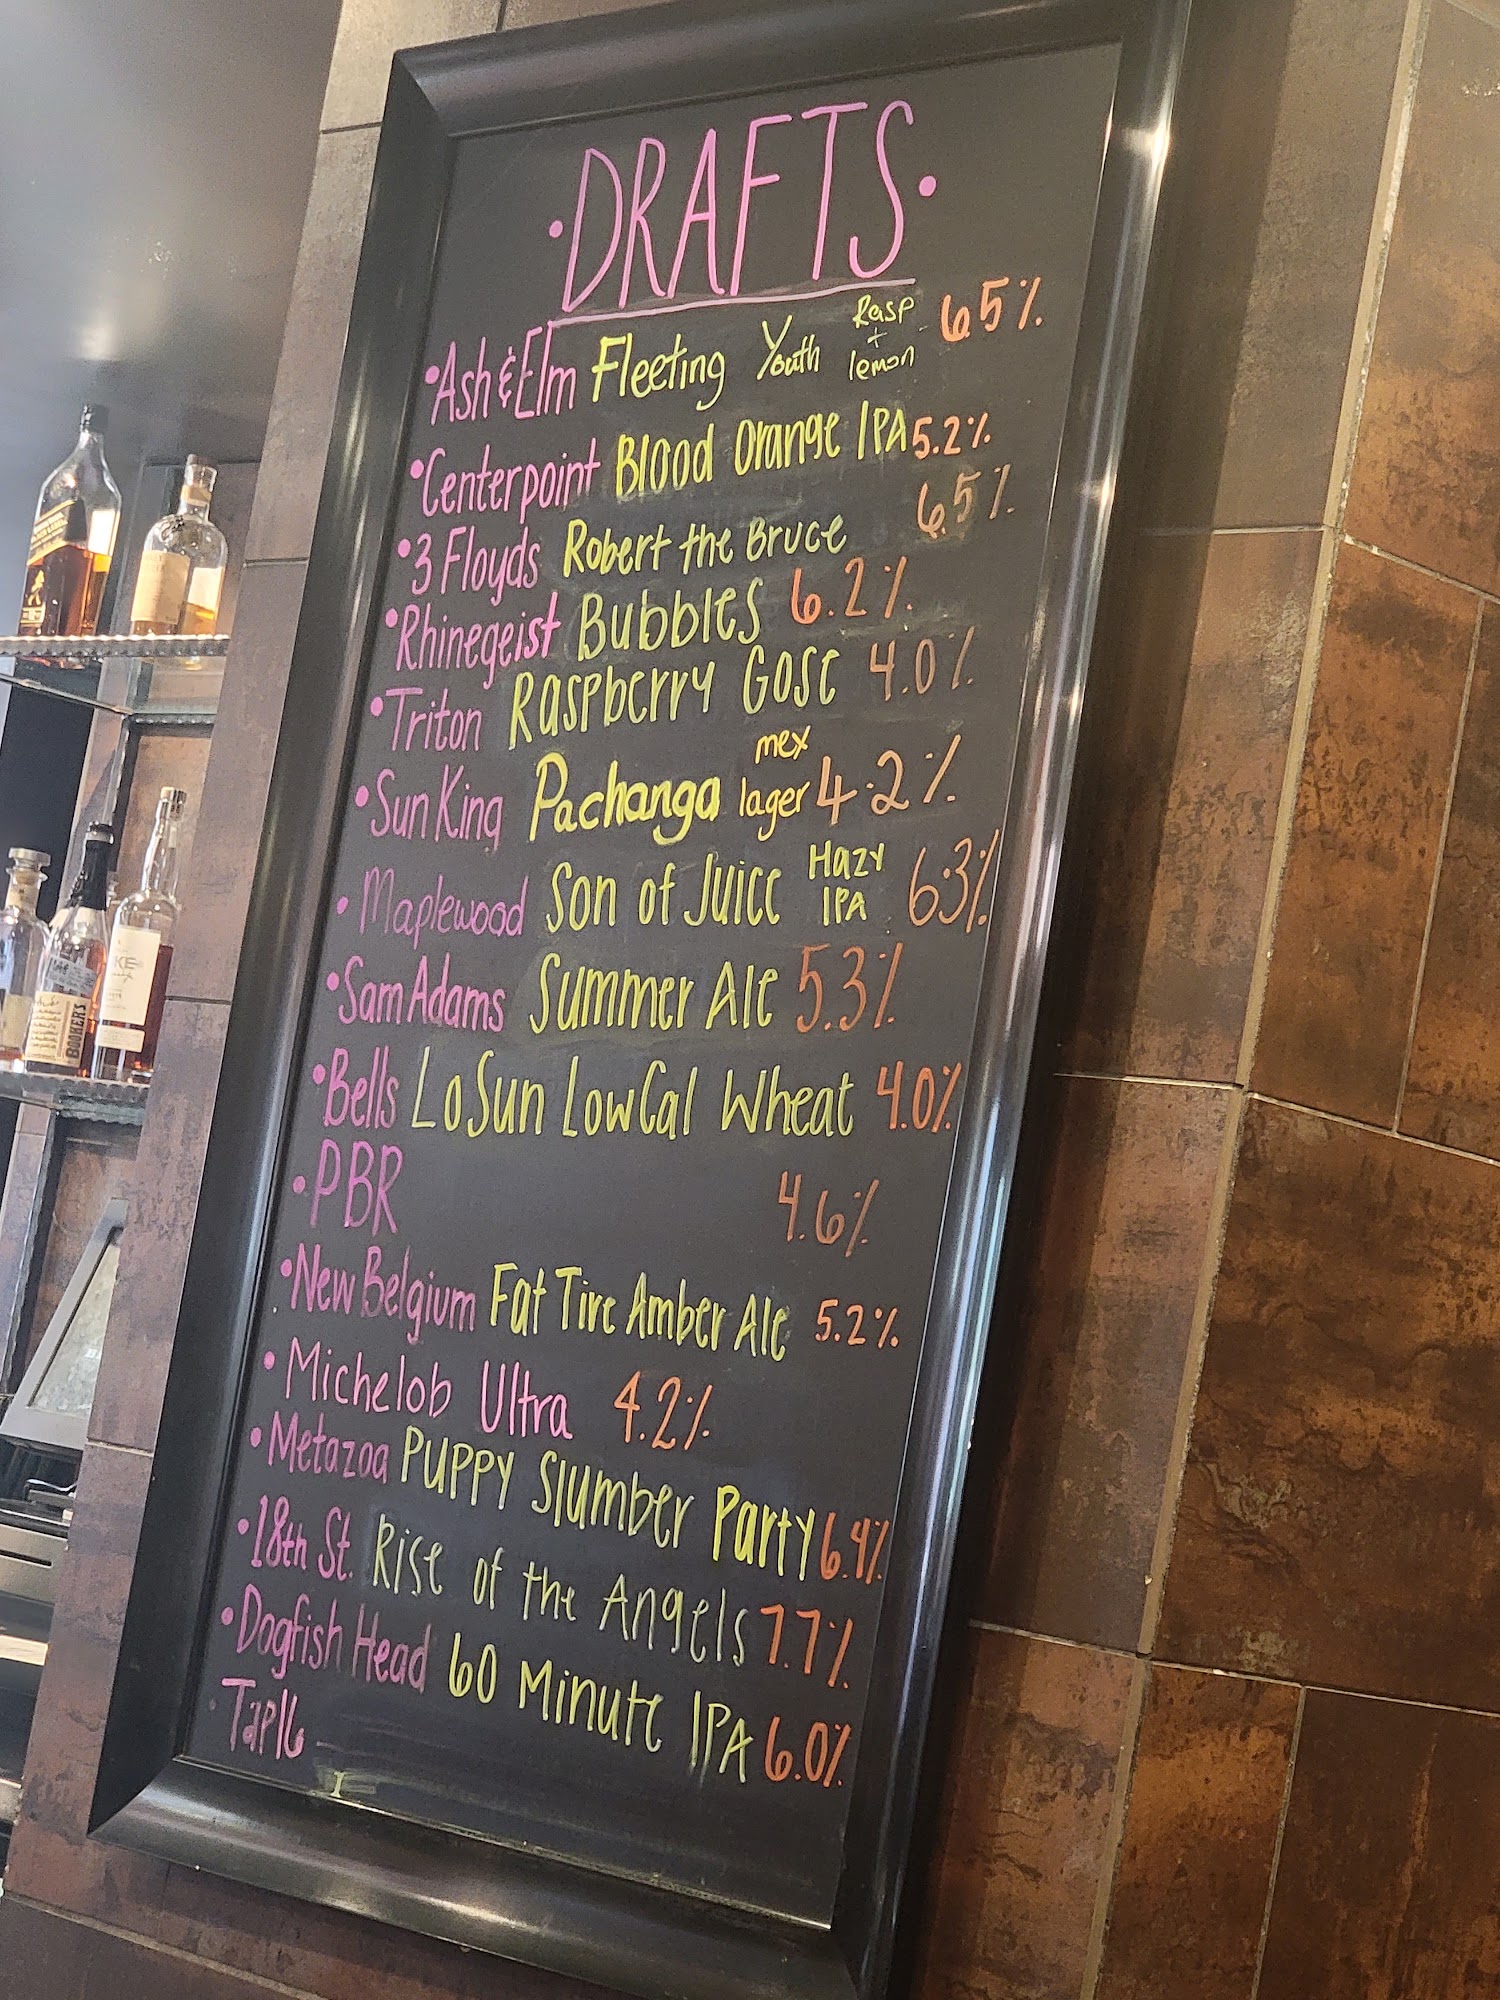 ·DRAFTS·
•Ash & Elm Fleeting Youth Rasp + lemon 6.5%
•Centerpoint Blood Orange IPA 5.2%
•3 Floyds Robert the Bruce 6.5%
•Rhinegeist Bubbles 6.2%
•Triton Raspberry Gose 4.0%
•Sun King Pachanga mex lager 4.2%
•Maplewood Son of Juice Hazy IPA 6.3%
•Sam Adams Summer Ale 5.3%
•Bells LoSun LowCal Wheat 4.0%
•PBR 4.6%
•New Belgium Fat Tire Amber Ale 5.2%
•Michelob Ultra 4.2%
•Metazoa Puppy Slumber Party 6.4%
•18th St. Rise of the Angels 7.7%
•Dogfish Head 60 Minute IPA 6.0%
Tap16
BOOKER'S